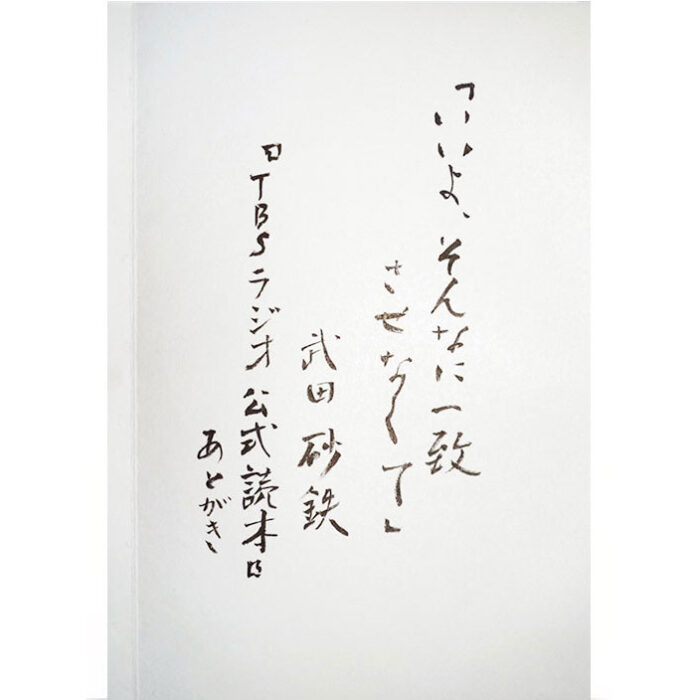 「いいよ、そんなに一致
させなくて」
武田砂鉄
『TBSラジオ公式読本』
あとがき